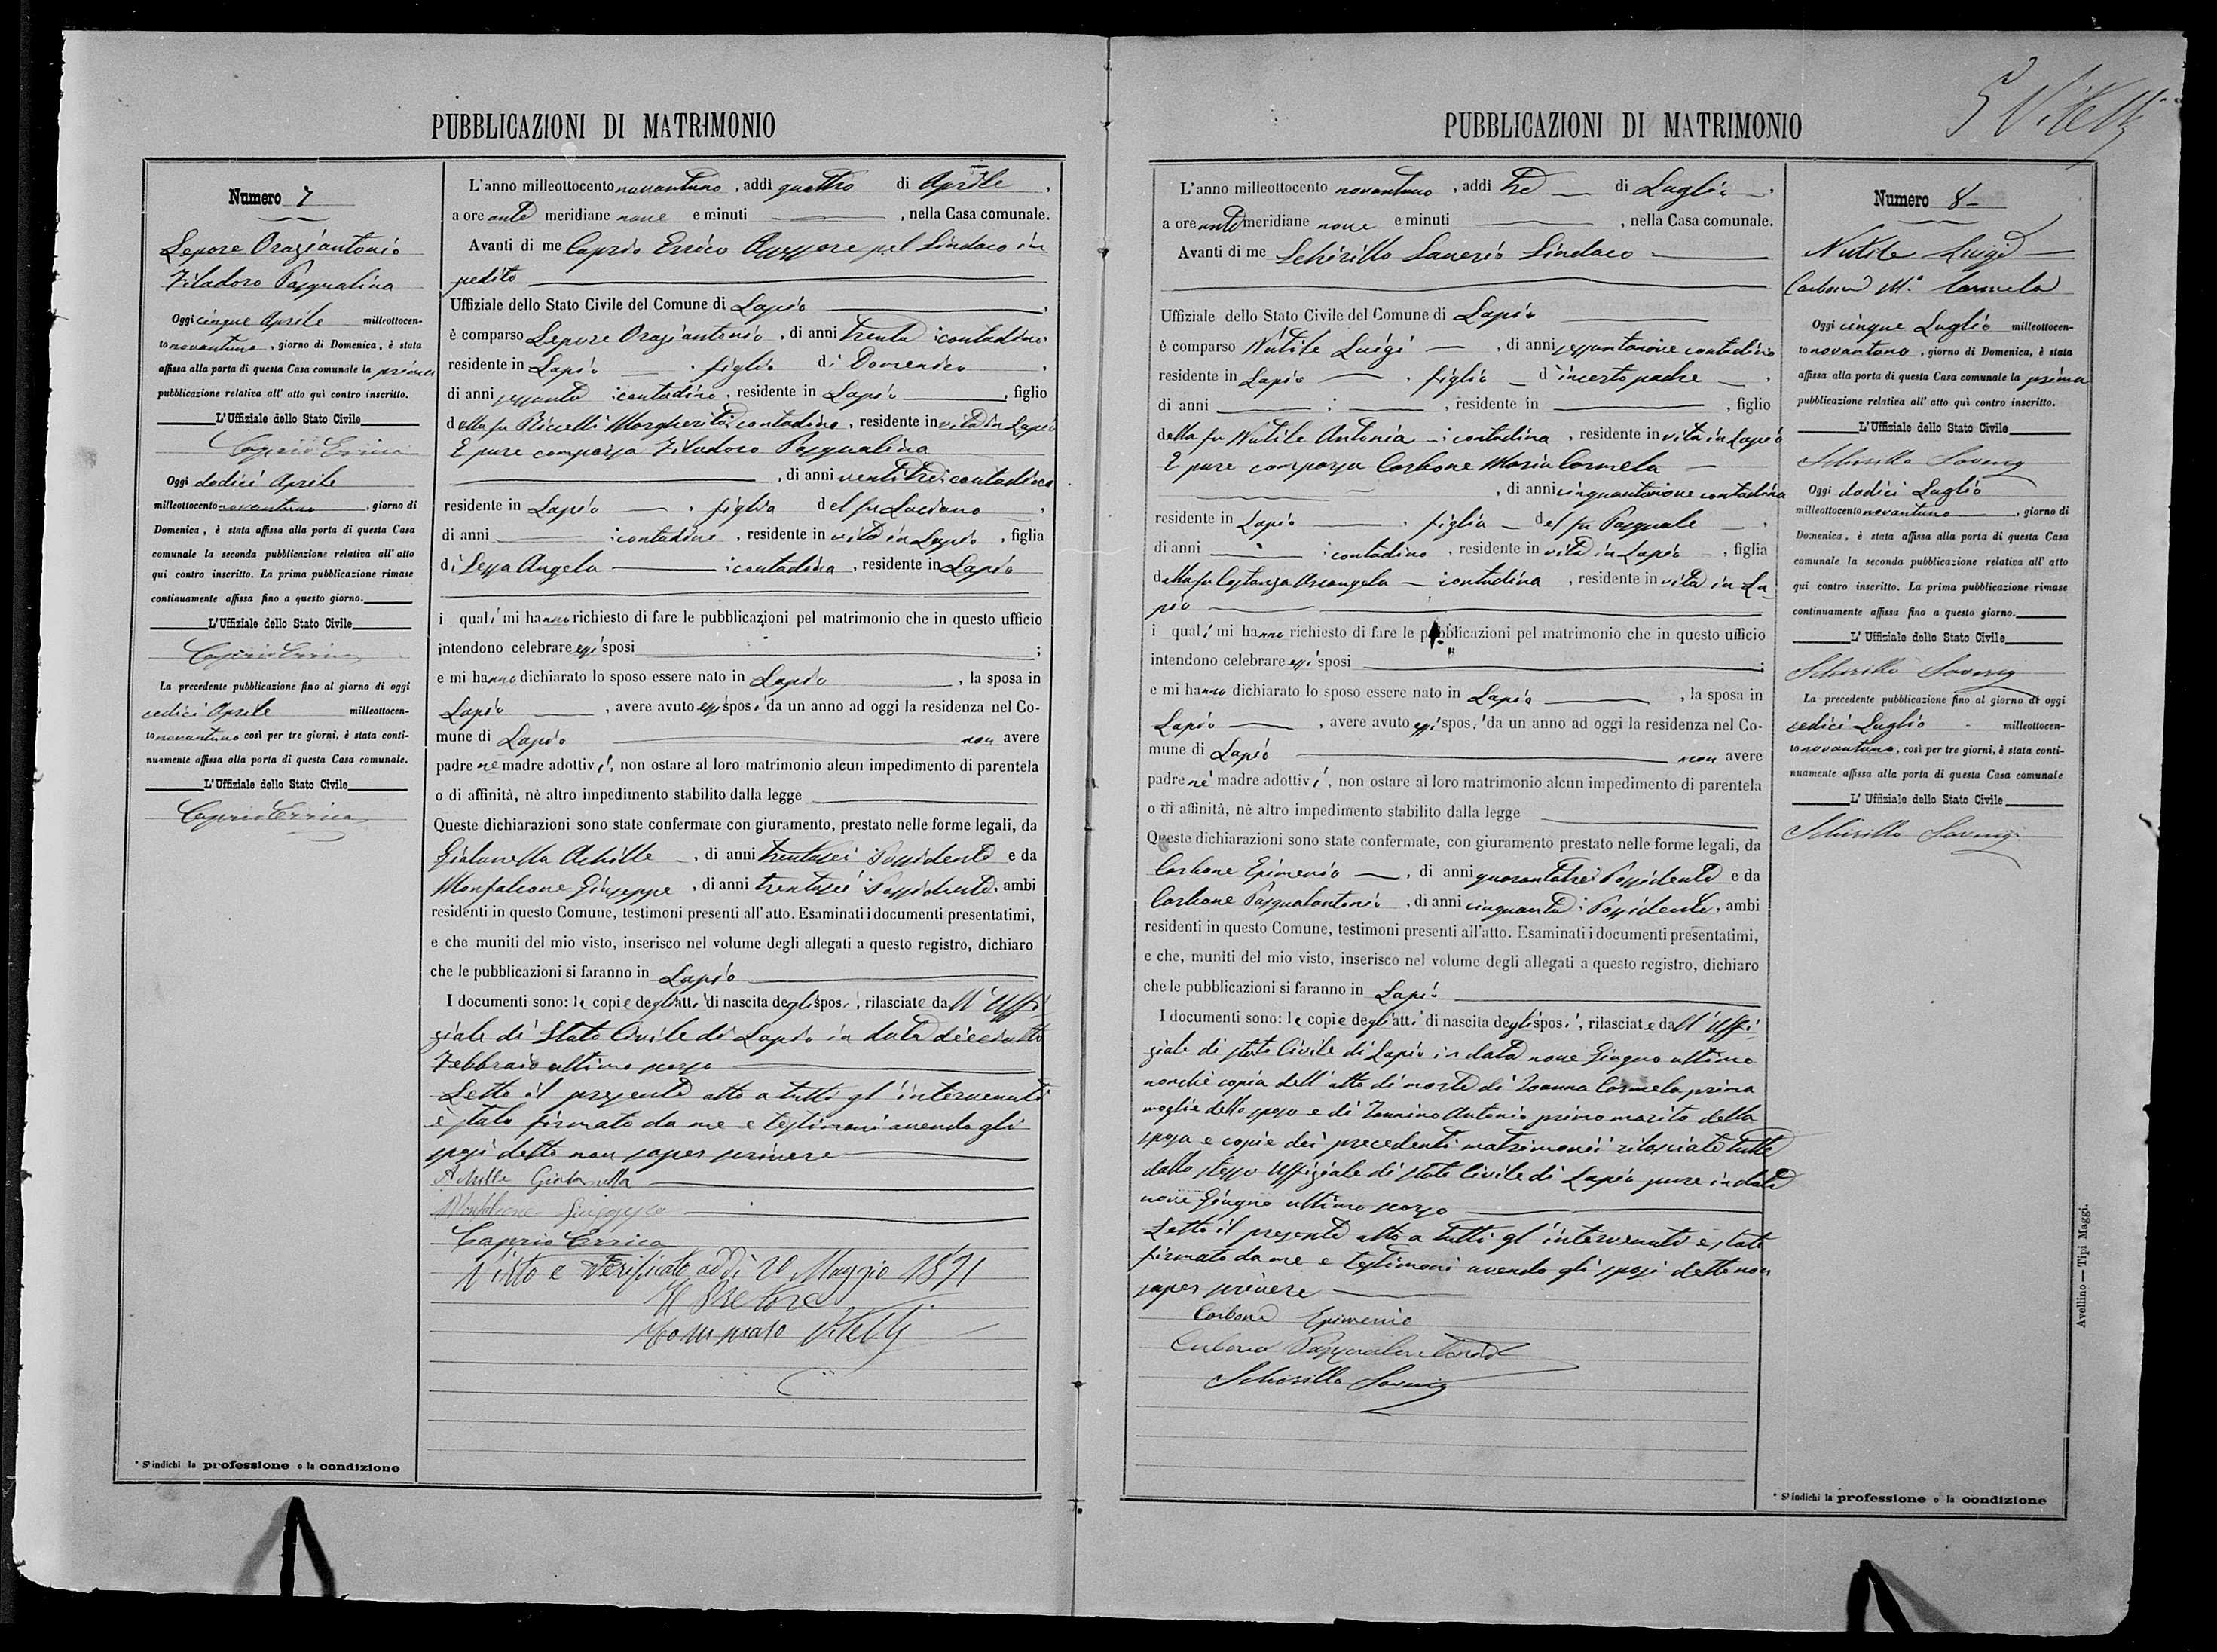 5 Vitelli
PUBBLICAZIONI DI MATRIMONIO
Numero 7
Lepore Oraziantonio
Filadoro Pasqualina
Oggi cinque Aprile milleottocen-
to novantuno, giorno di Domenica, è stata
affissa alla porta di questa Casa comunale la prima
pubblicazione relativa all' atto quì contro inscritto.
L'Uffiziale dello Stato Civile
Caprio Errico
Oggi dodici Aprile
milleottocento novantuno, giorno di
Domenica, è stata affissa alla porta di questa Casa
comunale la seconda pubblicazione relativa all' atto
qui contro inscritto. La prima pubblicazione rimase
continuamente affissa fino a questo giorno.
L'Uffiziale dello Stato Civile
Caprio Errico
La precedente pubblicazione fino al giorno di oggi
sedici Aprile milleottocen-
to novantuno così per tre giorni, è stata conti-
nuamente affissa alla porta di questa Casa comunale.
L'Uffiziale dello Stato Civile
Caprio Errico
* S'indichi la professione o la condizione
L'anno milleottocento novantuno, addì quattro di Aprile,
a ore ante meridiane nove e minuti , nella Casa comunale.
Avanti di me Caprio Errico Assessore pel Sindaco im
pedito
Uffiziale dello Stato Civile del Comune di Lapio,
è comparso Lepore Oraziantonio, di anni trenta; contadino
residente in Lapio, figlio di Domenico,
di anni sessanta; contadino, residente in Lapio, figlio
della fu Riccelli Margherita; contadina, residente in vita in Lapio
E pure comparsa Filadoro Pasqualina
, di anni ventitre; contadina
residente in Lapio, figlia del fu Luciano,
di anni ; contadino, residente in vita in Lapio, figlia
di Lessa Angela ; contadina, residente in Lapio
i quali mi hanno richiesto di fare le pubblicazioni pel matrimonio che in questo ufficio
intendono celebrare essi sposi ;
e mi hanno dichiarato lo sposo essere nato in Lapio, la sposa in
Lapio, avere avuto essi sposi da un anno ad oggi la residenza nel Co-
mune di Lapio non avere
padre nè madre adottivi, non ostare al loro matrimonio alcun impedimento di parentela
o di affinità, nè altro impedimento stabilito dalla legge
Queste dichiarazioni sono state confermate con giuramento, prestato nelle forme legali, da
Gialanella Achille, di anni trentasei Possidente e da
Monfalcone Giuseppe, di anni trentasei Possidente, ambi
residenti in questo Comune, testimoni presenti all'atto. Esaminati i documenti presentatimi,
e che muniti del mio visto, inserisco nel volume degli allegati a questo registro, dichiaro
che le pubblicazioni si faranno in Lapio
I documenti sono: le copie degli atti di nascita degli sposi, rilasciate dall'Uffi-
ziale di Stato Civile di Lapio in data dieciotto
Febbraio ultimo scorso
Letto il presente atto a tutti gl'intervenuti
è stato firmato da me e testimoni avendo gli
sposi detto non saper scrivere
Achille Gialanella
Monfalcone Giuseppe
Caprio Errico
Visto e Verificato addì 20 Maggio 1891
Il Pretore
Tommaso Vitelli
PUBBLICAZIONI DI MATRIMONIO
L'anno milleottocento novantuno, addì tre di Luglio,
a ore antimeridiane nove e minuti , nella Casa comunale.
Avanti di me Schirillo Saverio Sindaco
Uffiziale dello Stato Civile del Comune di Lapio
è comparso Nutile Luigi, di anni sessantanove contadino
residente in Lapio, figlio d'incerto padre,
di anni ; , residente in , figlio
della fu Nutile Antonia; contadina, residente in vita in Lapio
E pure comparsa Carbone Maria Carmela
, di anni cinquantanove contadina
residente in Lapio, figlia del fu Pasquale,
di anni ; contadino, residente in vita in Lapio, figlia
della fu Costanza Arcangela; contadina, residente in vita in La-
pio
i quali mi hanno richiesto di fare le pubblicazioni pel matrimonio che in questo ufficio
intendono celebrare essi sposi ;
e mi hanno dichiarato lo sposo essere nato in Lapio, la sposa in
Lapio, avere avuto essi sposi da un anno ad oggi la residenza nel Co-
mune di Lapio non avere
padre nè madre adottivi, non ostare al loro matrimonio alcun impedimento di parentela
o di affinità, nè altro impedimento stabilito dalla legge
Queste dichiarazioni sono state confermate, con giuramento prestato nelle forme legali, da
Carbone Epimenio, di anni quarantatre Possidente e da
Carbone Pasqualantonio, di anni cinquanta; Possidente, ambi
residenti in questo Comune, testimoni presenti all'atto. Esaminati i documenti presentatimi,
e che, muniti del mio visto, inserisco nel volume degli allegati a questo registro, dichiaro
che le pubblicazioni si faranno in Lapio
I documenti sono: le copie degli atti di nascita degli sposi, rilasciate dall'Uffi-
ziale di stato Civile di Lapio in data nove Giugno ultimo
nonchè copia dell'atto di morte di Ioanna Carmela prima
moglie dello sposo e di Iannino Antonio primo marito della
sposa e copie dei precedenti matrimonii rilasciate tutte
dallo stesso Uffiziale di stato Civile di Lapio pure in data
nove Giugno ultimo scorso
Letto il presente atto a tutti gl'intervenuti è stato
firmato da me e testimoni avendo gli sposi detto non
saper scrivere
Carbone Epimenio
Carbone Pasqualantonio
Schirillo Saverio
Numero 8
Nutile Luigi
Carbone Mª Carmela
Oggi cinque Luglio milleottocen-
to novantuno, giorno di Domenica, è stata
affissa alla porta di questa Casa comunale la prima
pubblicazione relativa all' atto quì contro inscritto.
L'Uffiziale dello Stato Civile
Schirillo Saverio
Oggi dodici Luglio
milleottocento novantuno, giorno di
Domenica, è stata affissa alla porta di questa Casa
comunale la seconda pubblicazione relativa all' atto
qui contro inscritto. La prima pubblicazione rimase
continuamente affissa fino a questo giorno.
L' Uffiziale dello Stato Civile
Schirillo Saverio
La precedente pubblicazione fino al giorno di oggi
sedici Luglio milleottocen-
to novantuno, così per tre giorni, è stata conti-
nuamente affissa alla porta di questa Casa comunale
L' Uffiziale dello Stato Civile
Schirillo Saverio
* S'indichi la professione o la condizione
Avellino — Tipi Maggi.